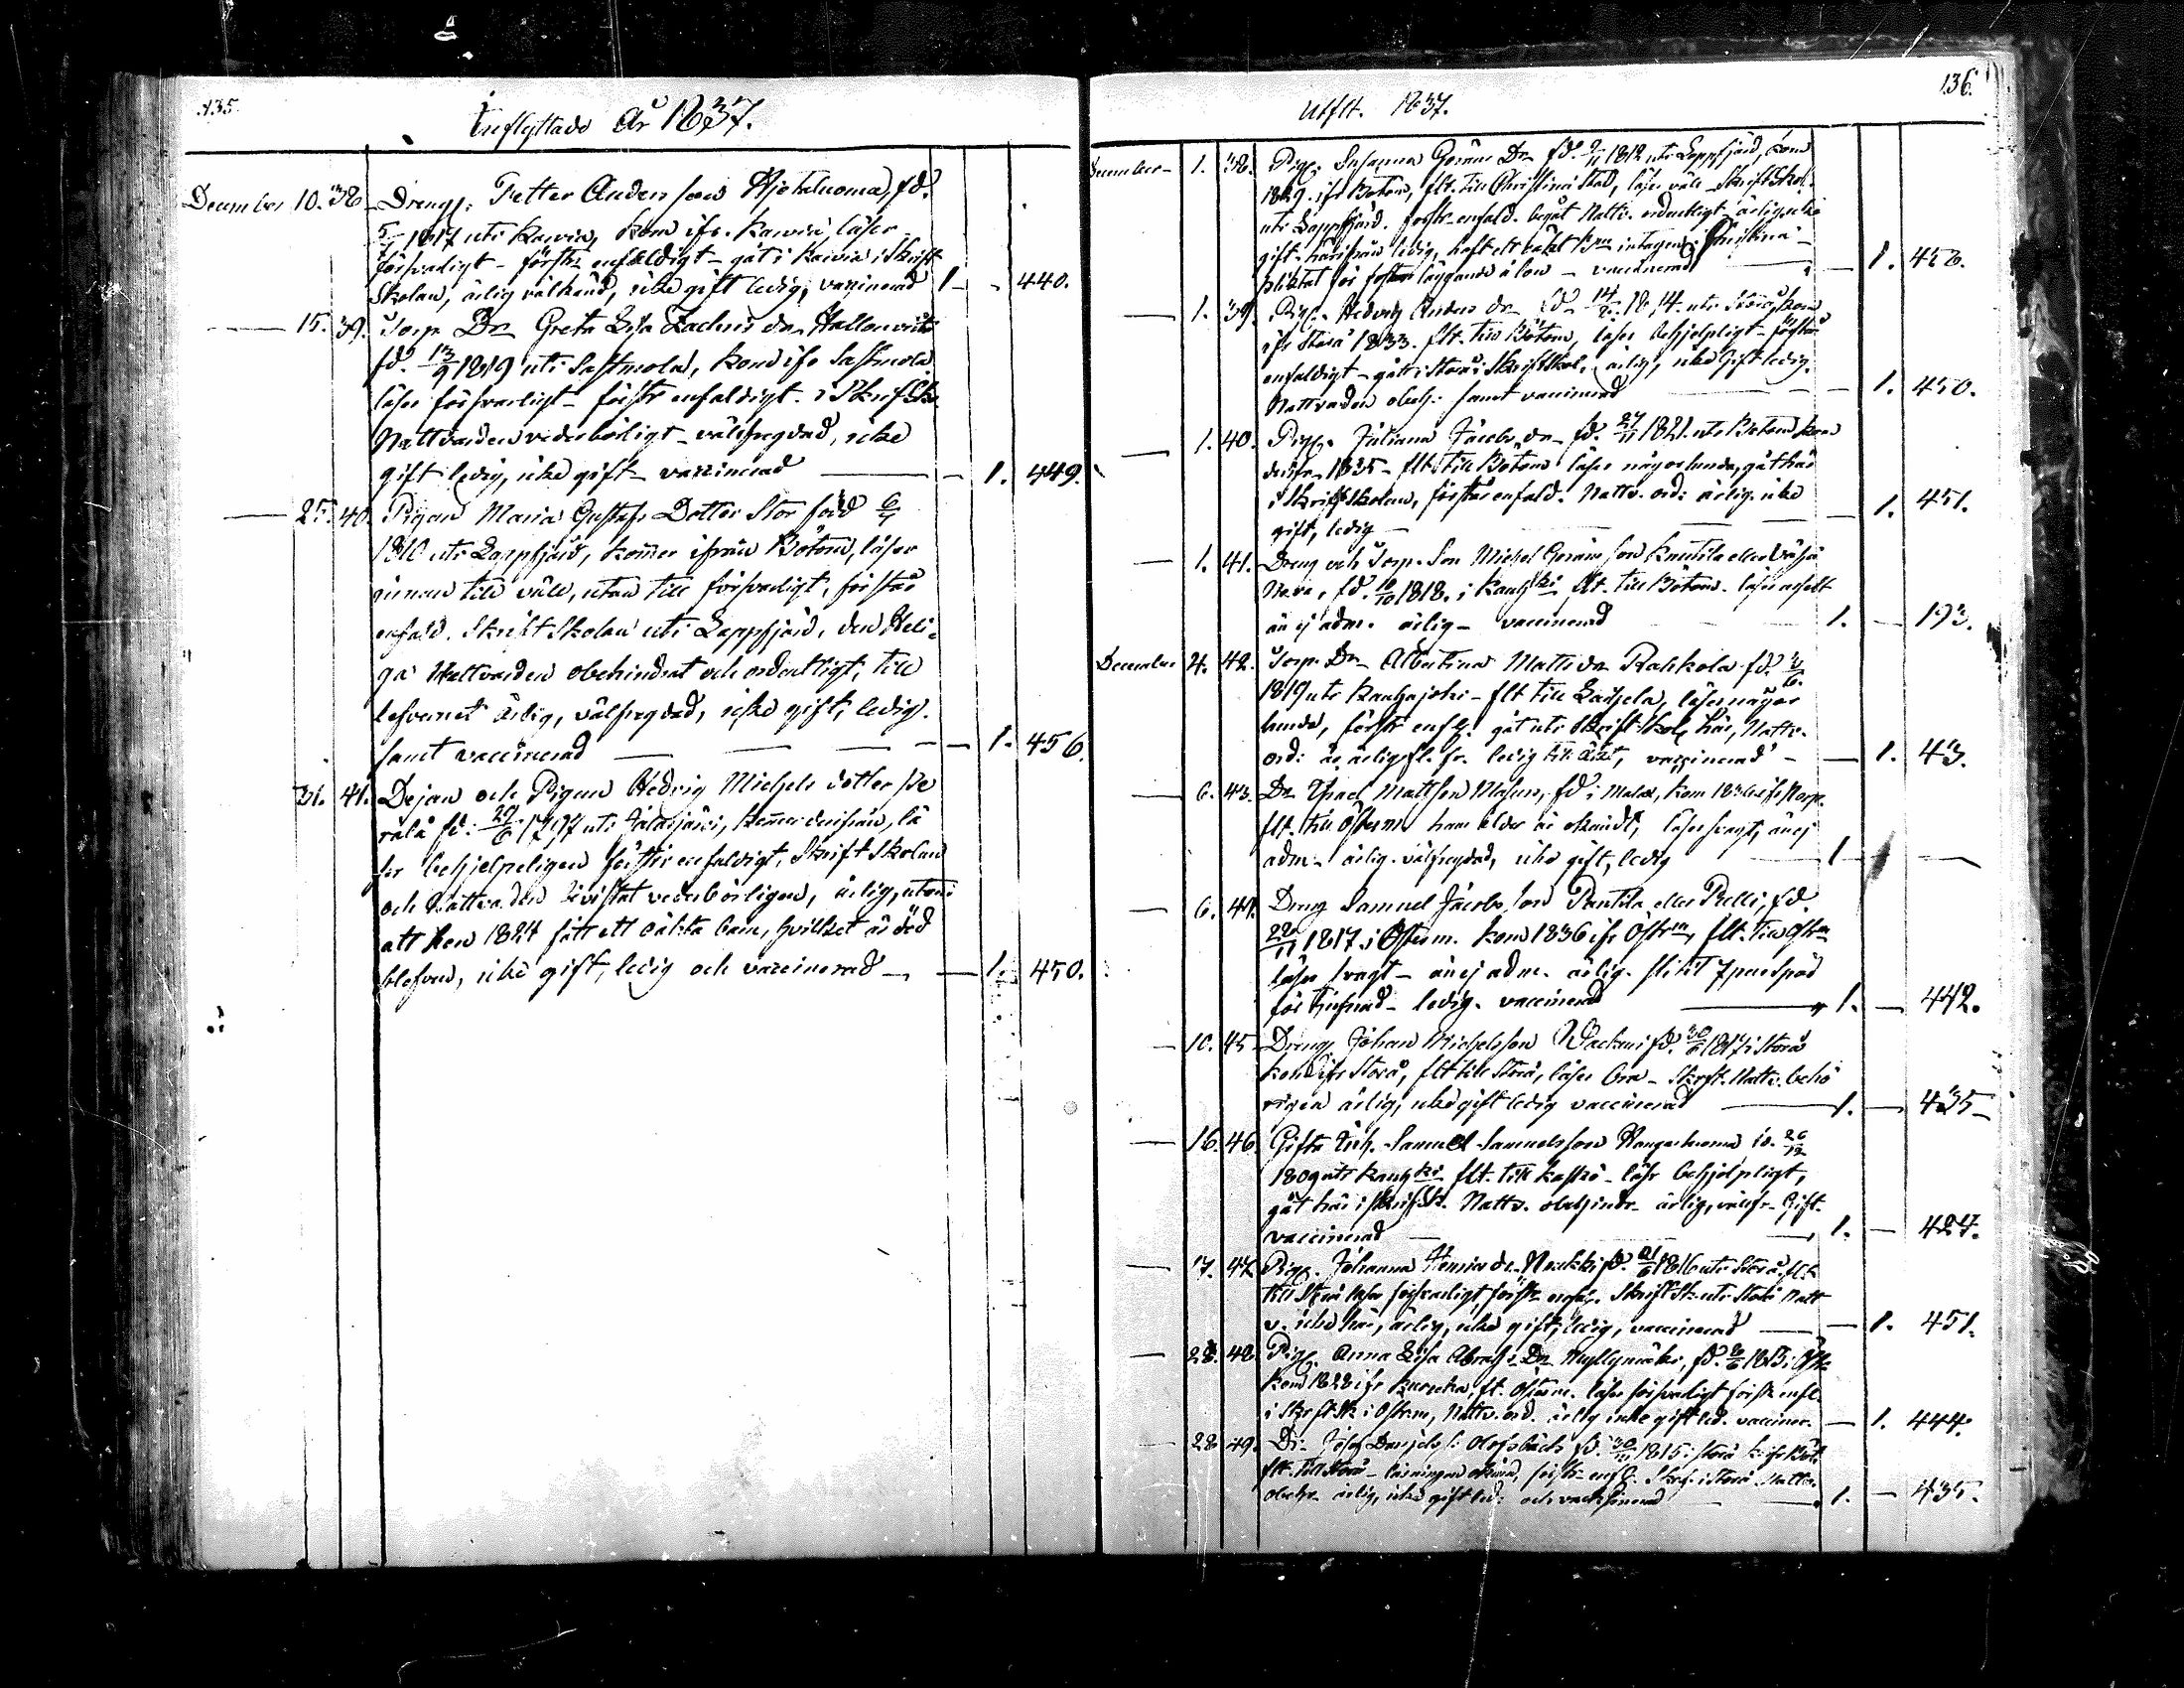 135.
Inflyttade År 1837.
December 10. 38. Drengs. Petter Anders son fd.
5/7 1817 uti Kawia, kom ifr. Kawia läser
försvarligt - förstr enfaldigt - gåt i Kawia i Skrift
Skolan, ärlig välkänd, icke gift ledig, vaxinerad 1 - 440.
15. 39. Dr Greta Lisa
fd. 13/9 1819 uti Sastmola, kom ifr Sastmola
läser försvarligt - förstr enfaldigt - i Skriftsk.
Nattvarden vederbörligt - välfregdad, icke
gift ledig, icke gift - vaxinerad - 1. 449.
25. 40. Pigan Maria Gustafs Dotter Stor född
1810 uti Lappfjärd, kommer ifrån Bötom, läser
innan till väll, utan till försvarligt, förstår
enfald. Skrift Skolan uti Lappfjärd, den Heli-
ga Nattvarden obehindrat och ordentligt, till
lefvernet ärlig, välfregdad, icke gift, ledig.
samt vaccinerad - 1. 456.
31. 41. Dejan och Pigan Hedvig Michels dotter
fd. 29/6 1797 uti kommer derifrån, lä
ser behjelpeligen förstår enfaldigt, Skrift Skolan
och Nattvarden bevistat vederbörligen, ärlig, utom
att hon 1824 fått ett oäkta barn, hvilket är död
blefven, icke gift, ledig och vaccinerad - 1. 450.
136.
Utflt. 1837.
December - 1. 38. Pig. Susanna Görans Dr fd. 1812 uti Lappfjärd, kom
1829 ifr Bötom, flt. till Christinæ Stad, läser väll - Skrift Skol.
uti Lappfjärd. förstr enfald. begåt Nattv. ordentligt - ärlig, icke
gift - härifrån ledig, haft ett oäkta barn intagen i Christinæ -
vaccinerad - 1.
1. 39. Pig. Hedvig Anders dr fd. 1814 uti Storå, kom
ifr Storå 1833. flt. till Bötom, läser behjelpligt - förstår
enfaldigt - gått i Storå i Skriftskol. ärlig, icke Gift ledig.
Nattvarden obeh. samt vaccinerad - 1. 450.
1. 40. Pig. Juliana Jacobs dr fd. 27/11 1821 uti Bötom kom
derifr. 1835 - flt. till Bötom läser någorlunda, gåt här
i Skrift Skolan, förstår enfald. Nattv. ord: ärlig. icke
gift, ledig - 1. 451.
1. 41. Dreng och Torp. Son Michel Görans son Knuutila eller
fd. 1818. i Kauhjki flt. till Bötom.
än ej adm. ärlig - vaccinerad 1. - 193.
December 4. 42. Torp. Dr Albertina Matts dr Rahkola fd.
1819 uti Kauhajoki - flt till Laihela, läser någor
lunda, förstr enf. gåt uti Skrift Skol. här, Nattv.
ord: är ärlig ledig till vaxinerad - 1. 43.
6. 43. Dr Isaac Mattsson fd. i Malax, kom
flt. till Österm. hans ålder är okänd, läser svagt, än ej
adm - ärlig. välfregdad, icke gift, ledig - 1 -
6. 44. Dreng Samuel Jacobs son Pantila eller Pelli, fd.
22/11 1817 i Österm. kom 1836 ifr Österm, flt. till Österm
läser svagt - än ej adm. ärlig. slitit 7 par spö
för tjufnad - ledig. vaccinerad - 1. - 442.
10. 45 Dreng Johan Michelsson fd. 30/6 1817 i Storå
kom ifr Storå, flt till Storå, läser bra - Skrft. Nattv. behö
rigen ärlig, icke gift ledig vaccinerad - 1. - 435 -
16. 46. Gifte Samuel Samuelsson fd. 26/12
1809 uti Kauhjki flt. till Kaskö - läser behjelpligt,
gåt här i skriftsk. Nattv. obehindr - ärlig, välfr - Gift -
vaccinerad - 1. - 427.
17. 47. Pig. Johanna Henrics dr fd. 21/6 1816 uti Storå, flt.
till Storå läser försvarligt, förstr enfal. Skrift Sk. uti Storå Natt
v. icke här, ärlig, icke gift, ledig, vaccinerad - 1. 451.
28. 48. Pig. Anna Lisa Abrahs Dr Myllymäki, fd. i Österm
kom 1828 ifr Kurikka, flt. Österm. läser försvarligt förstr enfl.
i Skrft Sk i Österm, Nattv. ord. ärlig icke gift led. vacciner. - 1. 444.
28. 49. Dr. Josef Daniels s: Olofsbäck fd. 30/11 1815 i Storå
flt. till Storå - läsningen okänd, förstr enf. Skrf. i Storå Nattv.
obehr - ärlig, icke gift led: och vaccinerad - 1. - 435.